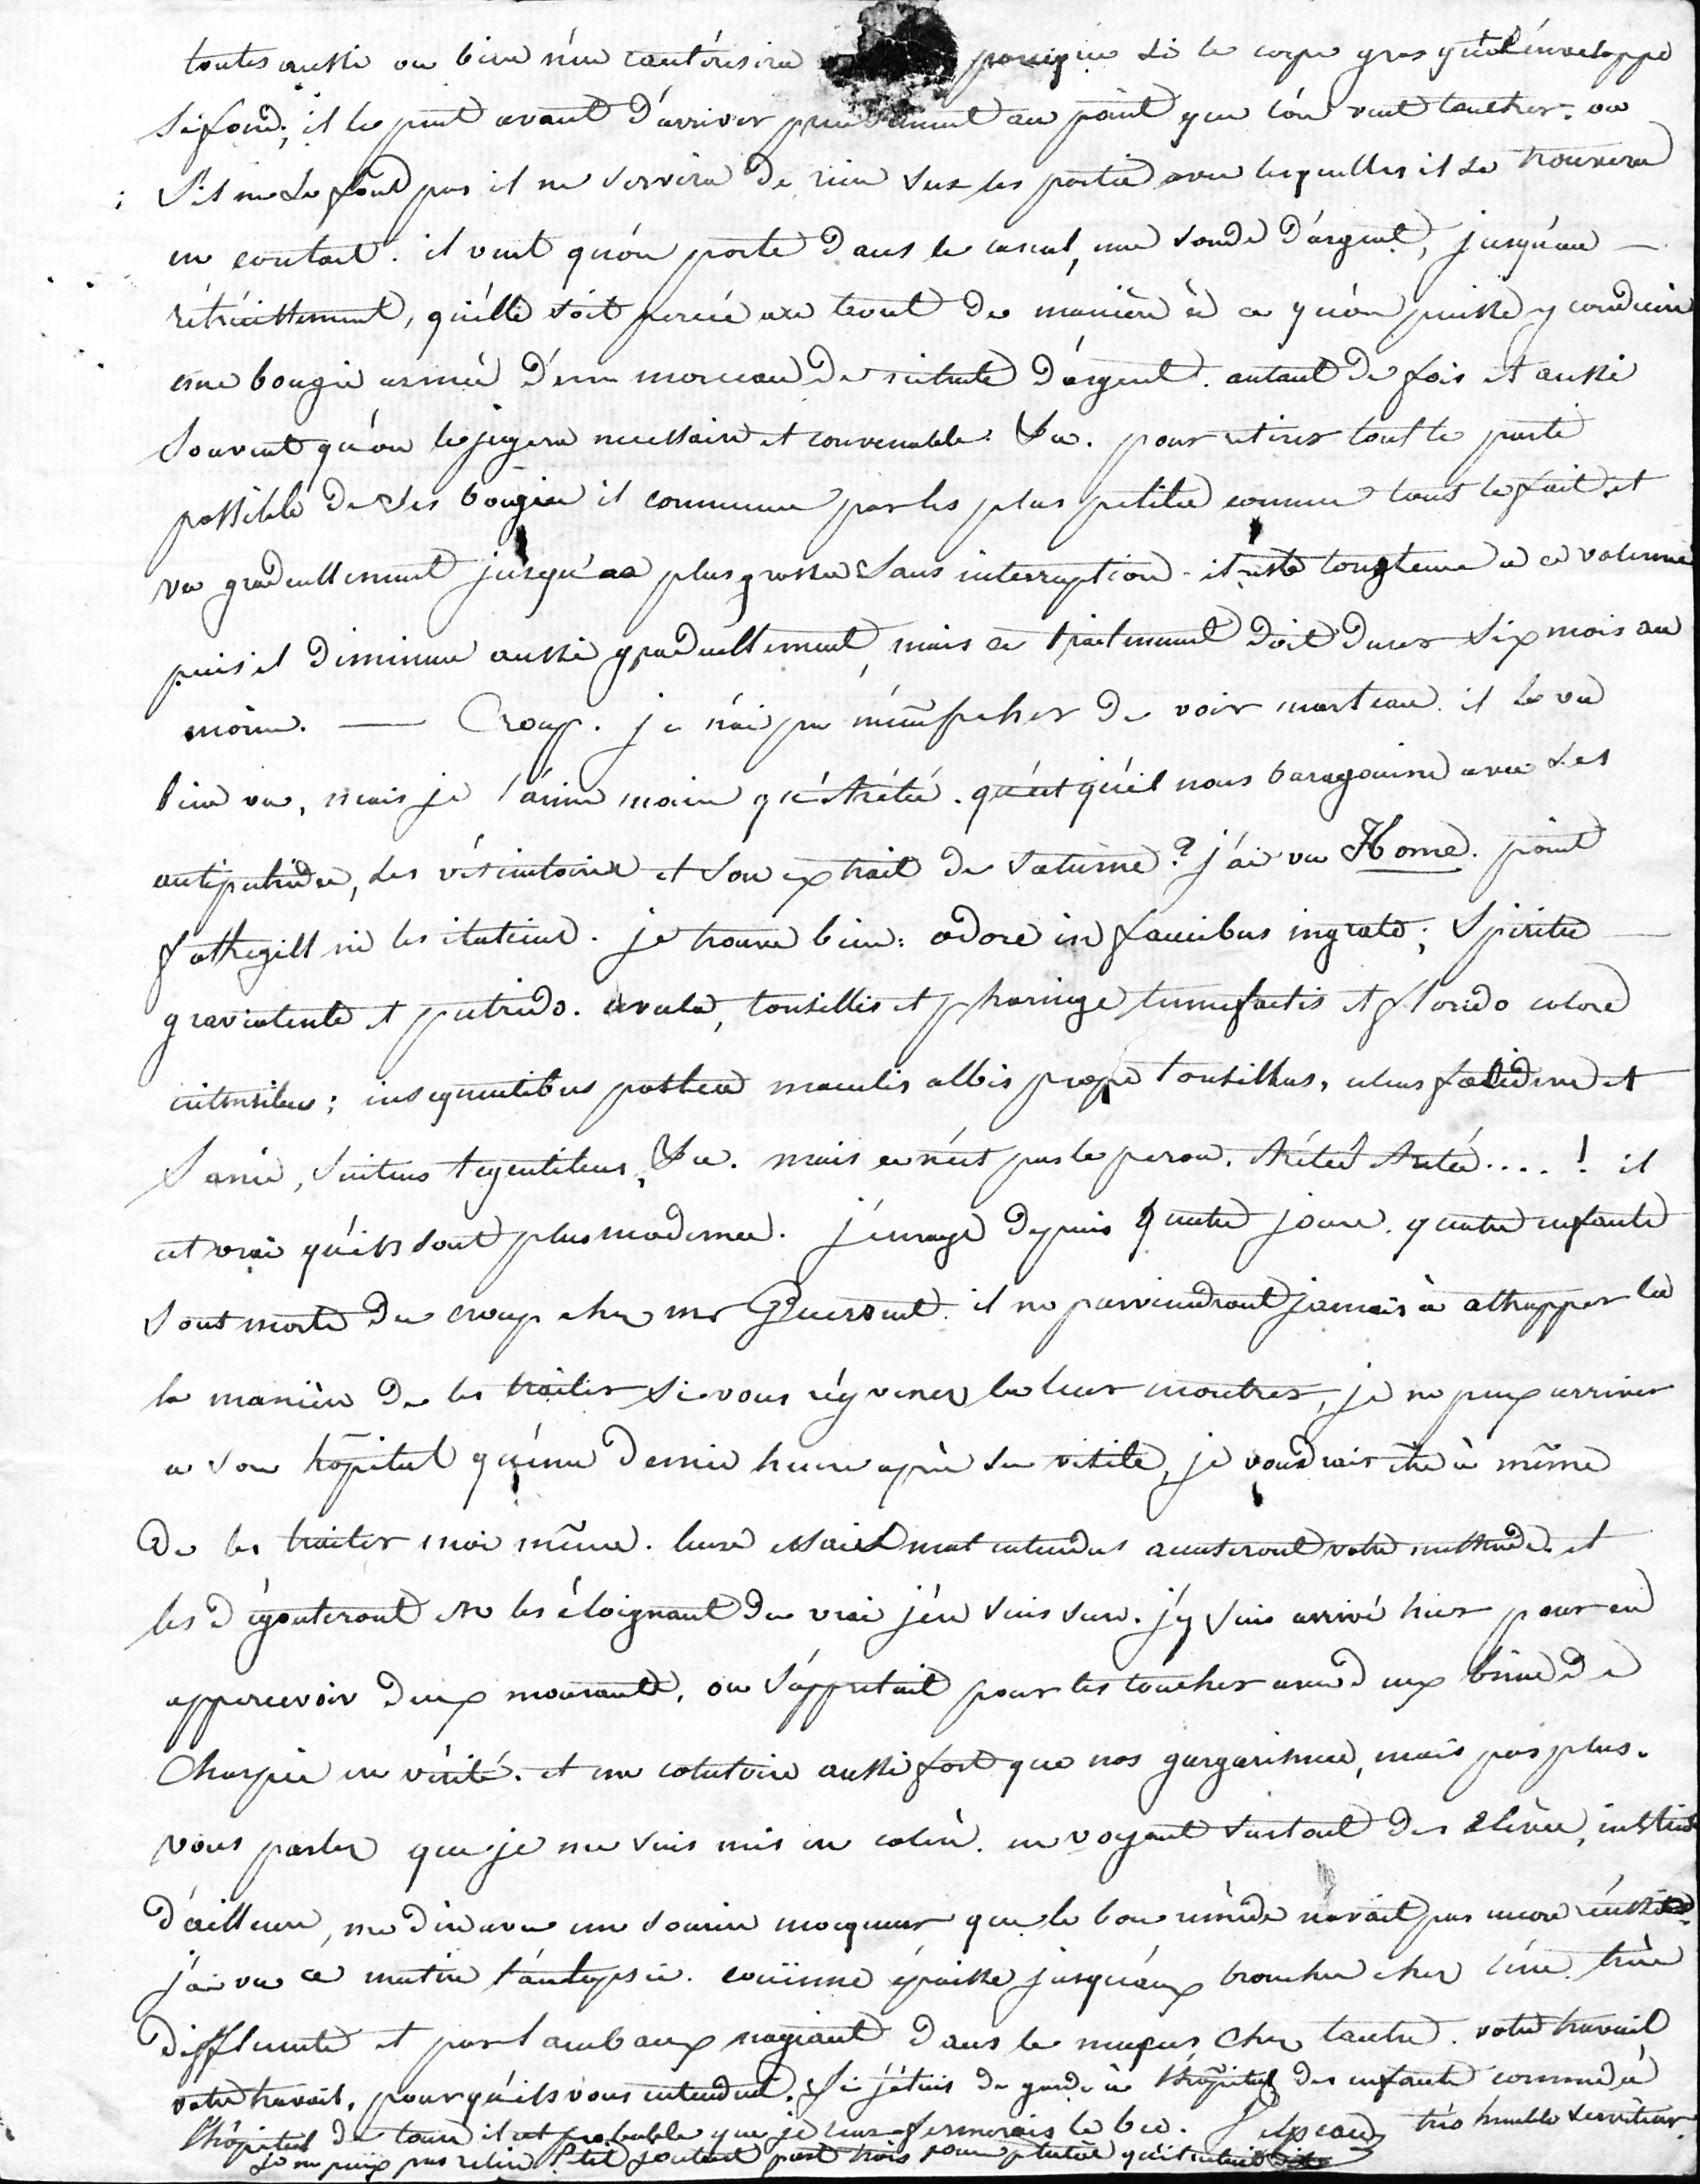 toutes aussi ou bien n'en cautérisera parceque si le corps gras qui l'énveloppe
se fond, il le peut avant d'arriver précisement au point que l'on veut toucher. ou
s'il ne se fond pas il ne servira de rien sur les partie avec lesquelles il se trouvera
en contact. il veut qu'on porte dans le canal, une sonde d'argent, jusqu'au
rétrécissement, qu'elle soit percée au bout de manière à ce qu'on puisse y conduire
une bougie armée d'un morceau de nitrate d'argent. autant de fois et aussi
souvent qu'on le jugera necessaire et convenable. &a. pour retirer tout le parti
possible de ses bougies il commence par les plus petites comme tous le fait et
va graduellement jusqu'aa plus grosses sans interruption. il reste longtems a ce volume
puis il diminue aussi graduellement, mais ce traitement doit durer six mois au
moins. — Croup. je n'ai pu m'empecher de voir marteau. il le vu
bien vu, mais je l'aime moins qu'Arétée. qu'est qu'il nous baragouine avec ses
antiputrides, ses vésicatoires et son extrait de saturne? j'ai vu Home. point
fothergill ni les italiens. je trouve bien: odore in faucibus ingrato; spiritu
graviolente et putrido. uvula, tonsillis et pharinge tumefactis et florido colore
intensibus; insequentibus postea maculis albis prope tonsillas, ulcus foetidum et
sanie, tegentibus, &a. mais ce n'est pas le perou. Arétée Arétée....! il
est vrai qu'ils sont plus modernes. j'enrage depuis quatre jours. quatre enfants
sont morts du croup chez mr Guersent. il ne parviendront jamais à attrapper la
la manière de les traiter si vous n'y venez la leur montrer, je ne peux arriver
a son hôpital qu'une demie heure après sa visite, je voudrais être à même
de les traiter moi même. leurs essais mal entendus accuseront votre methode et
les dégouteront en les éloignant du vrai j'en suis sur. j'y suis arrivé hier pour en
appercevoir deux mourants, on s'appretait pour les toucher avec deux brins de
charpie en vérité. et un colutoire aussi fort que nos gargarismes, mais pas plus.
vous parlez que je me suis mis en colère. en voyant surtout des élèves,
d'ailleurs, me dire avec un sourire moqueur que le bon remède n'avait pas encore réussi
j'ai vu ce matin l'autopsie. couënne épaisse jusqu'aux bronches chez l'une. très
diffluente et par lambeaux nageant dans le mucus chez l'autre. votre travail
votre travail, pour qu'ils vous entendent. Si j'étais de garde à l'hôpital des enfants comme à
l'hôpital de tours il est probable que je leur fermerais le bec. très humble serviteur.
je ne peux pas relire